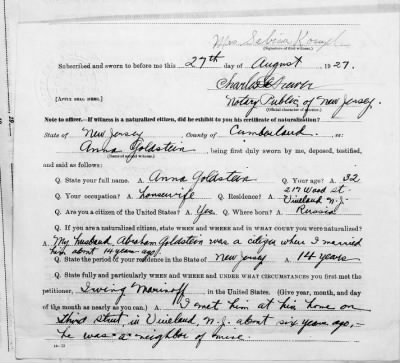 Mrs. Sabina
(Signature of first witness.)
Subscribed and sworn to before me this 27th day of August, 1927.
Charles
[AFFIX SEAL HERE.]
Notary Public of New Jersey.
(Official character of attestor.)
Note to officer.—If witness is a naturalized citizen, did he exhibit to you his certificate of naturalization?
State of New Jersey County of Cumberland. ss:
Anna Goldstein, being first duly sworn by me, deposed, testified,
(Name of second witness.)
and said as follows:
Q. State your full name. A. Anna Goldstein Q. Your age? A. 32
Q. Your occupation? A. housewife Q. Residence? A. 217 Wood St. Vineland N.J.
Q. Are you a citizen of the United States? A. Yes Q. Where born? A. Russia
Q. If you are a naturalized citizen, state WHEN and WHERE and IN WHAT COURT you were naturalized?
A. My husband Abraham Goldstein was a citizen when I married
him about 14 years ago.
Q. State the period of your residence in the State of New Jersey A. 14 years
Q. State fully and particularly WHEN and WHERE and UNDER WHAT CIRCUMSTANCES you first met the
petitioner, Irving, in the United States. (Give year, month, and day
of the month as nearly as you can.) A. I met him at his home on
Third street, in Vineland, N.J. about six years ago,—
he was a neighbor of mine.